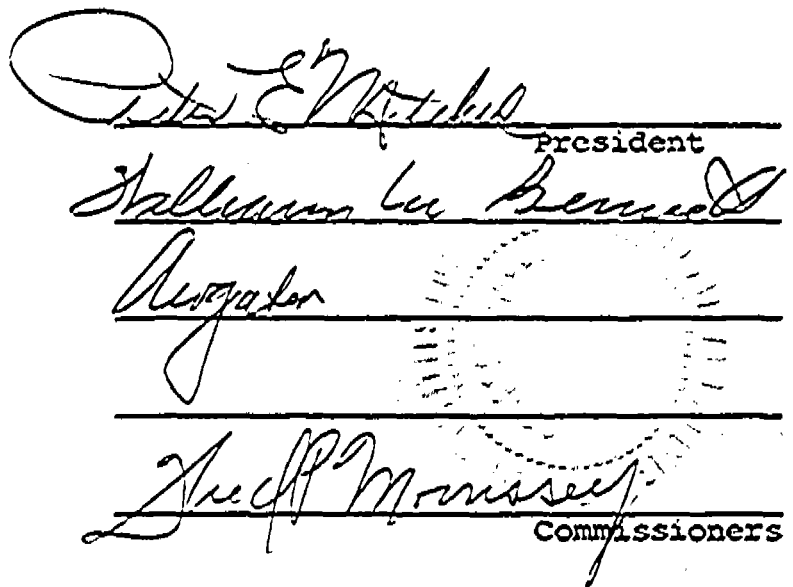 Peter E Mitchell
President
William M Bennett
Fred P Morrissey
Commissioners